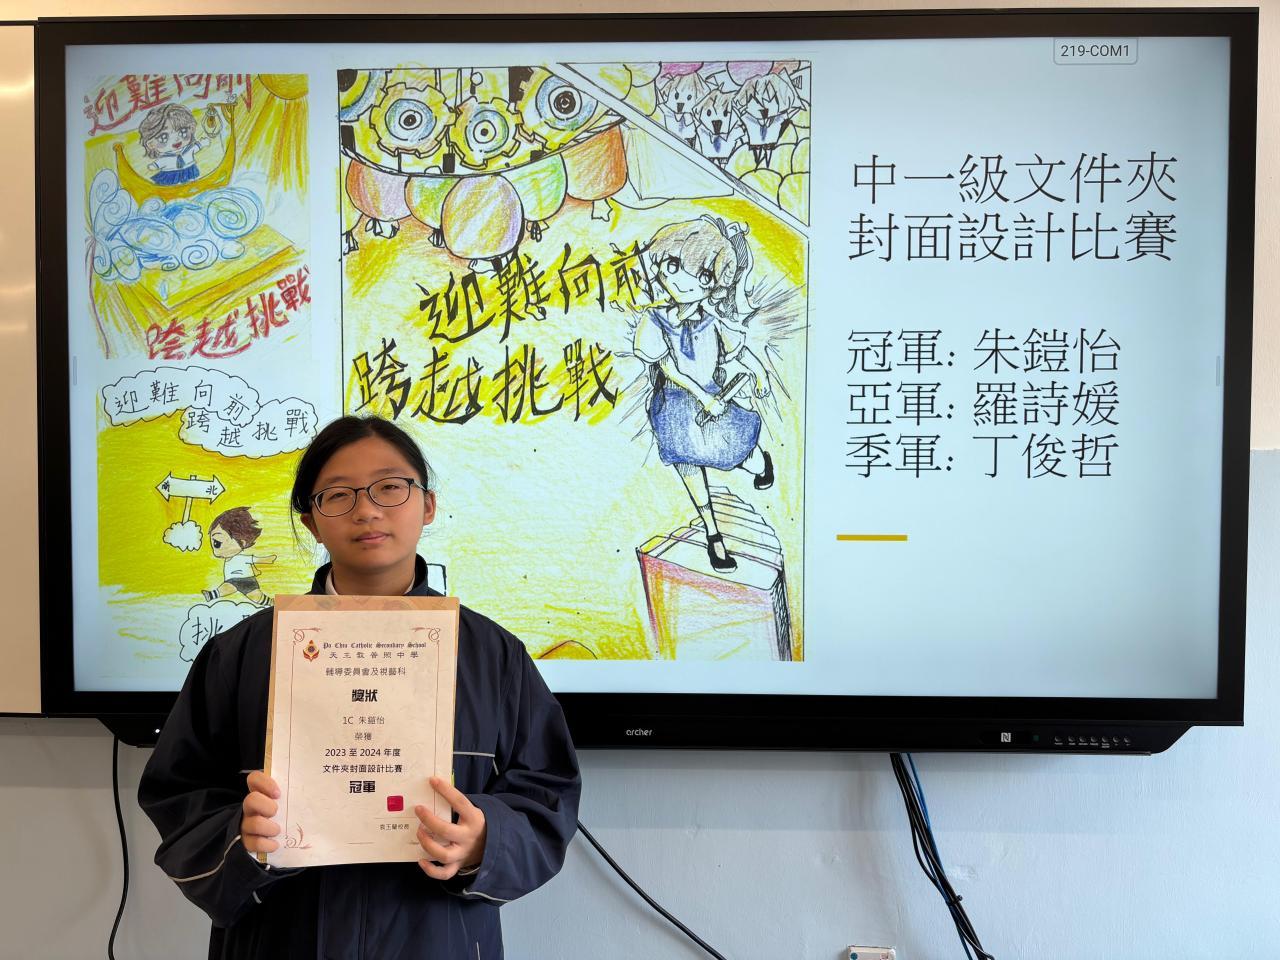 219-COM1
迎難向前
跨越挑戰
迎難向前
跨越挑戰
迎難向前
跨越挑戰
南 北
挑
中一級文件夾
封面設計比賽
冠軍: 朱鎧怡
亞軍: 羅詩媛
季軍: 丁俊哲
archer
Po Chiu Catholic Secondary School
天主教普照中學
輔導委員會及視藝科
獎狀
1C 朱鎧怡
榮獲
2023 至 2024 年度
文件夾封面設計比賽
冠軍